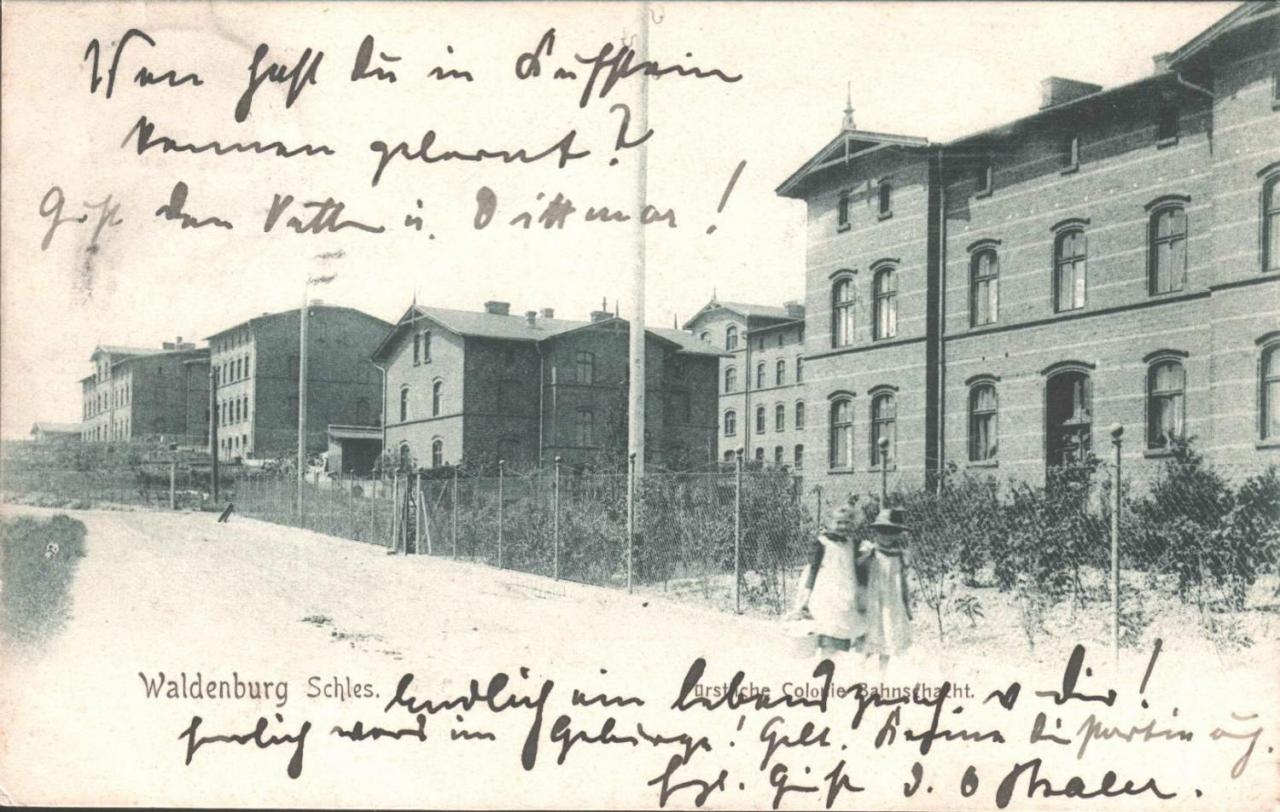 Wen hast du in Kufstein
kennen gelernt?
Grüße den Vetter u. Dittmar!
Waldenburg Schles.
Fürstliche Colonie Bahnschacht.
Endlich ein Lebenszeich. v dir!
herrlich wars im Gebirge! Gelt! Kenne die Partie
hzl. Grüße d.